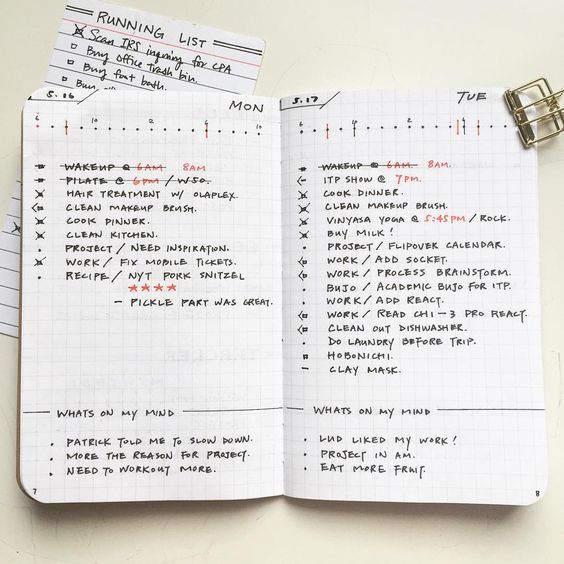 RUNNING LIST
Scan IRS inquiry for CPA
Buy office trash bin.
Buy foot bath.
Buy
5.16
MON
6 10 2 6 10
WAKEUP @ 6AM 8AM
PILATE @ 6PM / W50.
HAIR TREATMENT W/ OLAPLEX.
CLEAN MAKEUP BRUSH.
COOK DINNER.
CLEAN KITCHEN.
PROJECT / NEED INSPIRATION.
WORK / FIX MOBILE TICKETS.
RECIPE / NYT PORK SNITZEL
★★★★
– PICKLE PART WAS GREAT.
WHATS ON MY MIND
. PATRICK TOLD ME TO SLOW DOWN.
. MORE THE REASON FOR PROJECT.
. NEED TO WORKOUT MORE.
7
5.17
TUE
6 10 2 6 10
WAKEUP @ 6AM. 8AM.
ITP SHOW @ 7PM.
COOK DINNER.
CLEAN MAKEUP BRUSH.
VINYASA YOGA @ 5:45PM / ROCK.
BUY MILK!
PROJECT / FLIPOVER CALENDAR.
WORK / ADD SOCKET.
WORK / PROCESS BRAINSTORM.
BUJO / ACADEMIC BUJO FOR ITP.
WORK / ADD REACT.
WORK / READ CH1–3 PRO REACT.
CLEAN OUT DISHWASHER.
DO LAUNDRY BEFORE TRIP.
HOBONICHI.
– CLAY MASK.
WHATS ON MY MIND
. LUD LIKED MY WORK!
. PROJECT IN AM.
. EAT MORE FRUIT.
8